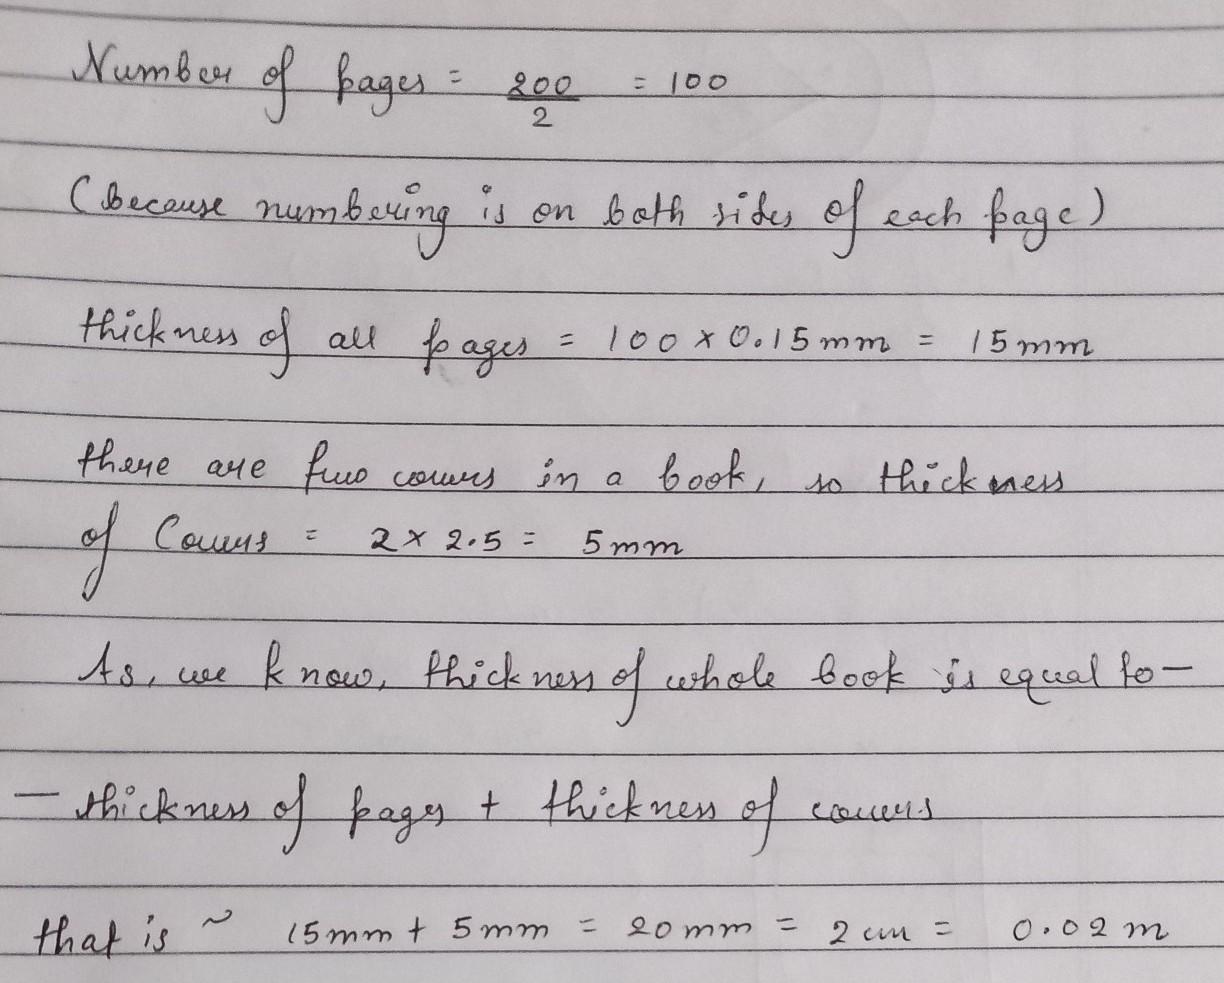 Number of pages = 200/2 = 100
(because numbering is on both sides of each page)
thickness of all pages = 100 x 0.15 mm = 15 mm
there are two covers in a book, so thickness
of Covers = 2 x 2.5 = 5 mm
As, we know, thickness of whole book is equal to —
— thickness of pages + thickness of covers
that is ~ 15 mm + 5 mm = 20 mm = 2 cm = 0.02 m